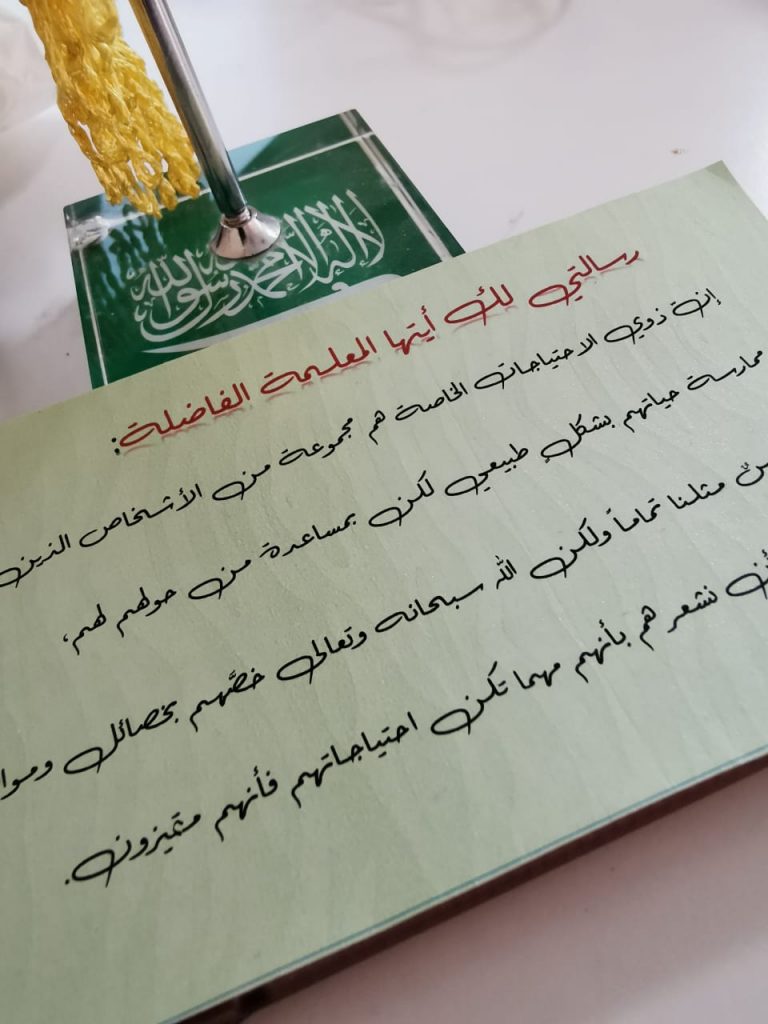 لا إله إلا الله محمد رسول الله
رسالتي لك أيتها المعلمة الفاضلة:
إنَّ ذوي الاحتياجات الخاصة هم مجموعة من الأشخاص الذين
ممارسة حياتهم بشكلٍ طبيعي لكن بمساعدة من حولهم لهم،
مثلنا تماماً ولكن الله سبحانه وتعالى خصَّهم بخصائل
أن نشعر هم بأنهم مهما تكن احتياجاتهم فأنهم متميزون.